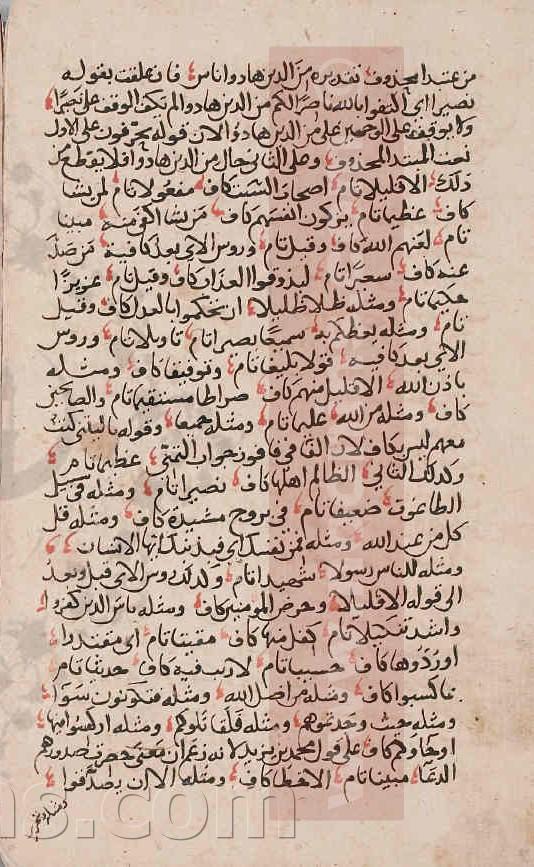 من عند المحذوف تقديره من الذين هادوا ناس فان علقت بقوله
نصيرا اي اكتفوا بالله ناصرا لكم من الذين هادوا لم يكن الوقف على نصيرا
ولا يوقف على الوجهين على من الذين هادوا لان قوله يحرفون على الاول
نعت المبتدا المحذوف وعلى الثاني حال من الذين هادوا فلا يقطع من
ذلك الا قليلا تام اصحاب السبت كاف مفعولا تام لمن يشا
كاف عظيما تام يزكون انفسهم كاف من يشا اكفى منه مبينا
تام لعنهم الله كاف وقيل تام وروس الاي بعد كافية من صد
عنه كاف سعيرا تام ليذوقوا العذاب كاف وقيل تام عزيزا
حكيما تام ومثله ظلا ظليلا ان تحكموا بالعدل كاف وقيل
تام ومثله يعظكم به سميعا بصيرا تام تاويلا تام وروس
الاي بعد كافية قولا بليغا تام وتوفيقا كاف ومثله
باذن الله الا قليل منهم كاف صراطا مستقيما تام والصالحين
كاف ومثله من الله عليما تام ومثله جميعا وقوله يا ليتني كنت
معهم ليس بكاف لان الفا في فافوز جواب التمني عظيما تام
وكذلك الثاني الظالم اهلها كاف نصيرا تام ومثله في سبيل
الطاغوت ضعيفا تام في بروج مشيدة كاف ومثله قل
كل من عند الله ومثله فمن نفسك اي فبذنبك ايها الانسان
ومثله للناس رسولا شهيدا تام وكذلك روس الاي قبل وبعد
الى قوله الا قليلا وحرض المومنين كاف ومثله باس الذين كفروا
واشد تنكيلا تام كفل منها كاف مقيتا تام اي مقتدرا
او ردوها كاف حسيبا تام لا ريب فيه كاف حديثا تام
بما كسبوا كاف ومثله من اضل الله ومثله فتكونون سوا
ومثله حيث وجدتموهم ومثله فلقاتلوكم ومثله اركسوا فيها
او جاوكم كاف على قول محمد بن يزيد لانه زعم ان معنى حصرت صدورهم
الدعا مبينا تام الا خطا كاف ومثله الا ان يصدقوا